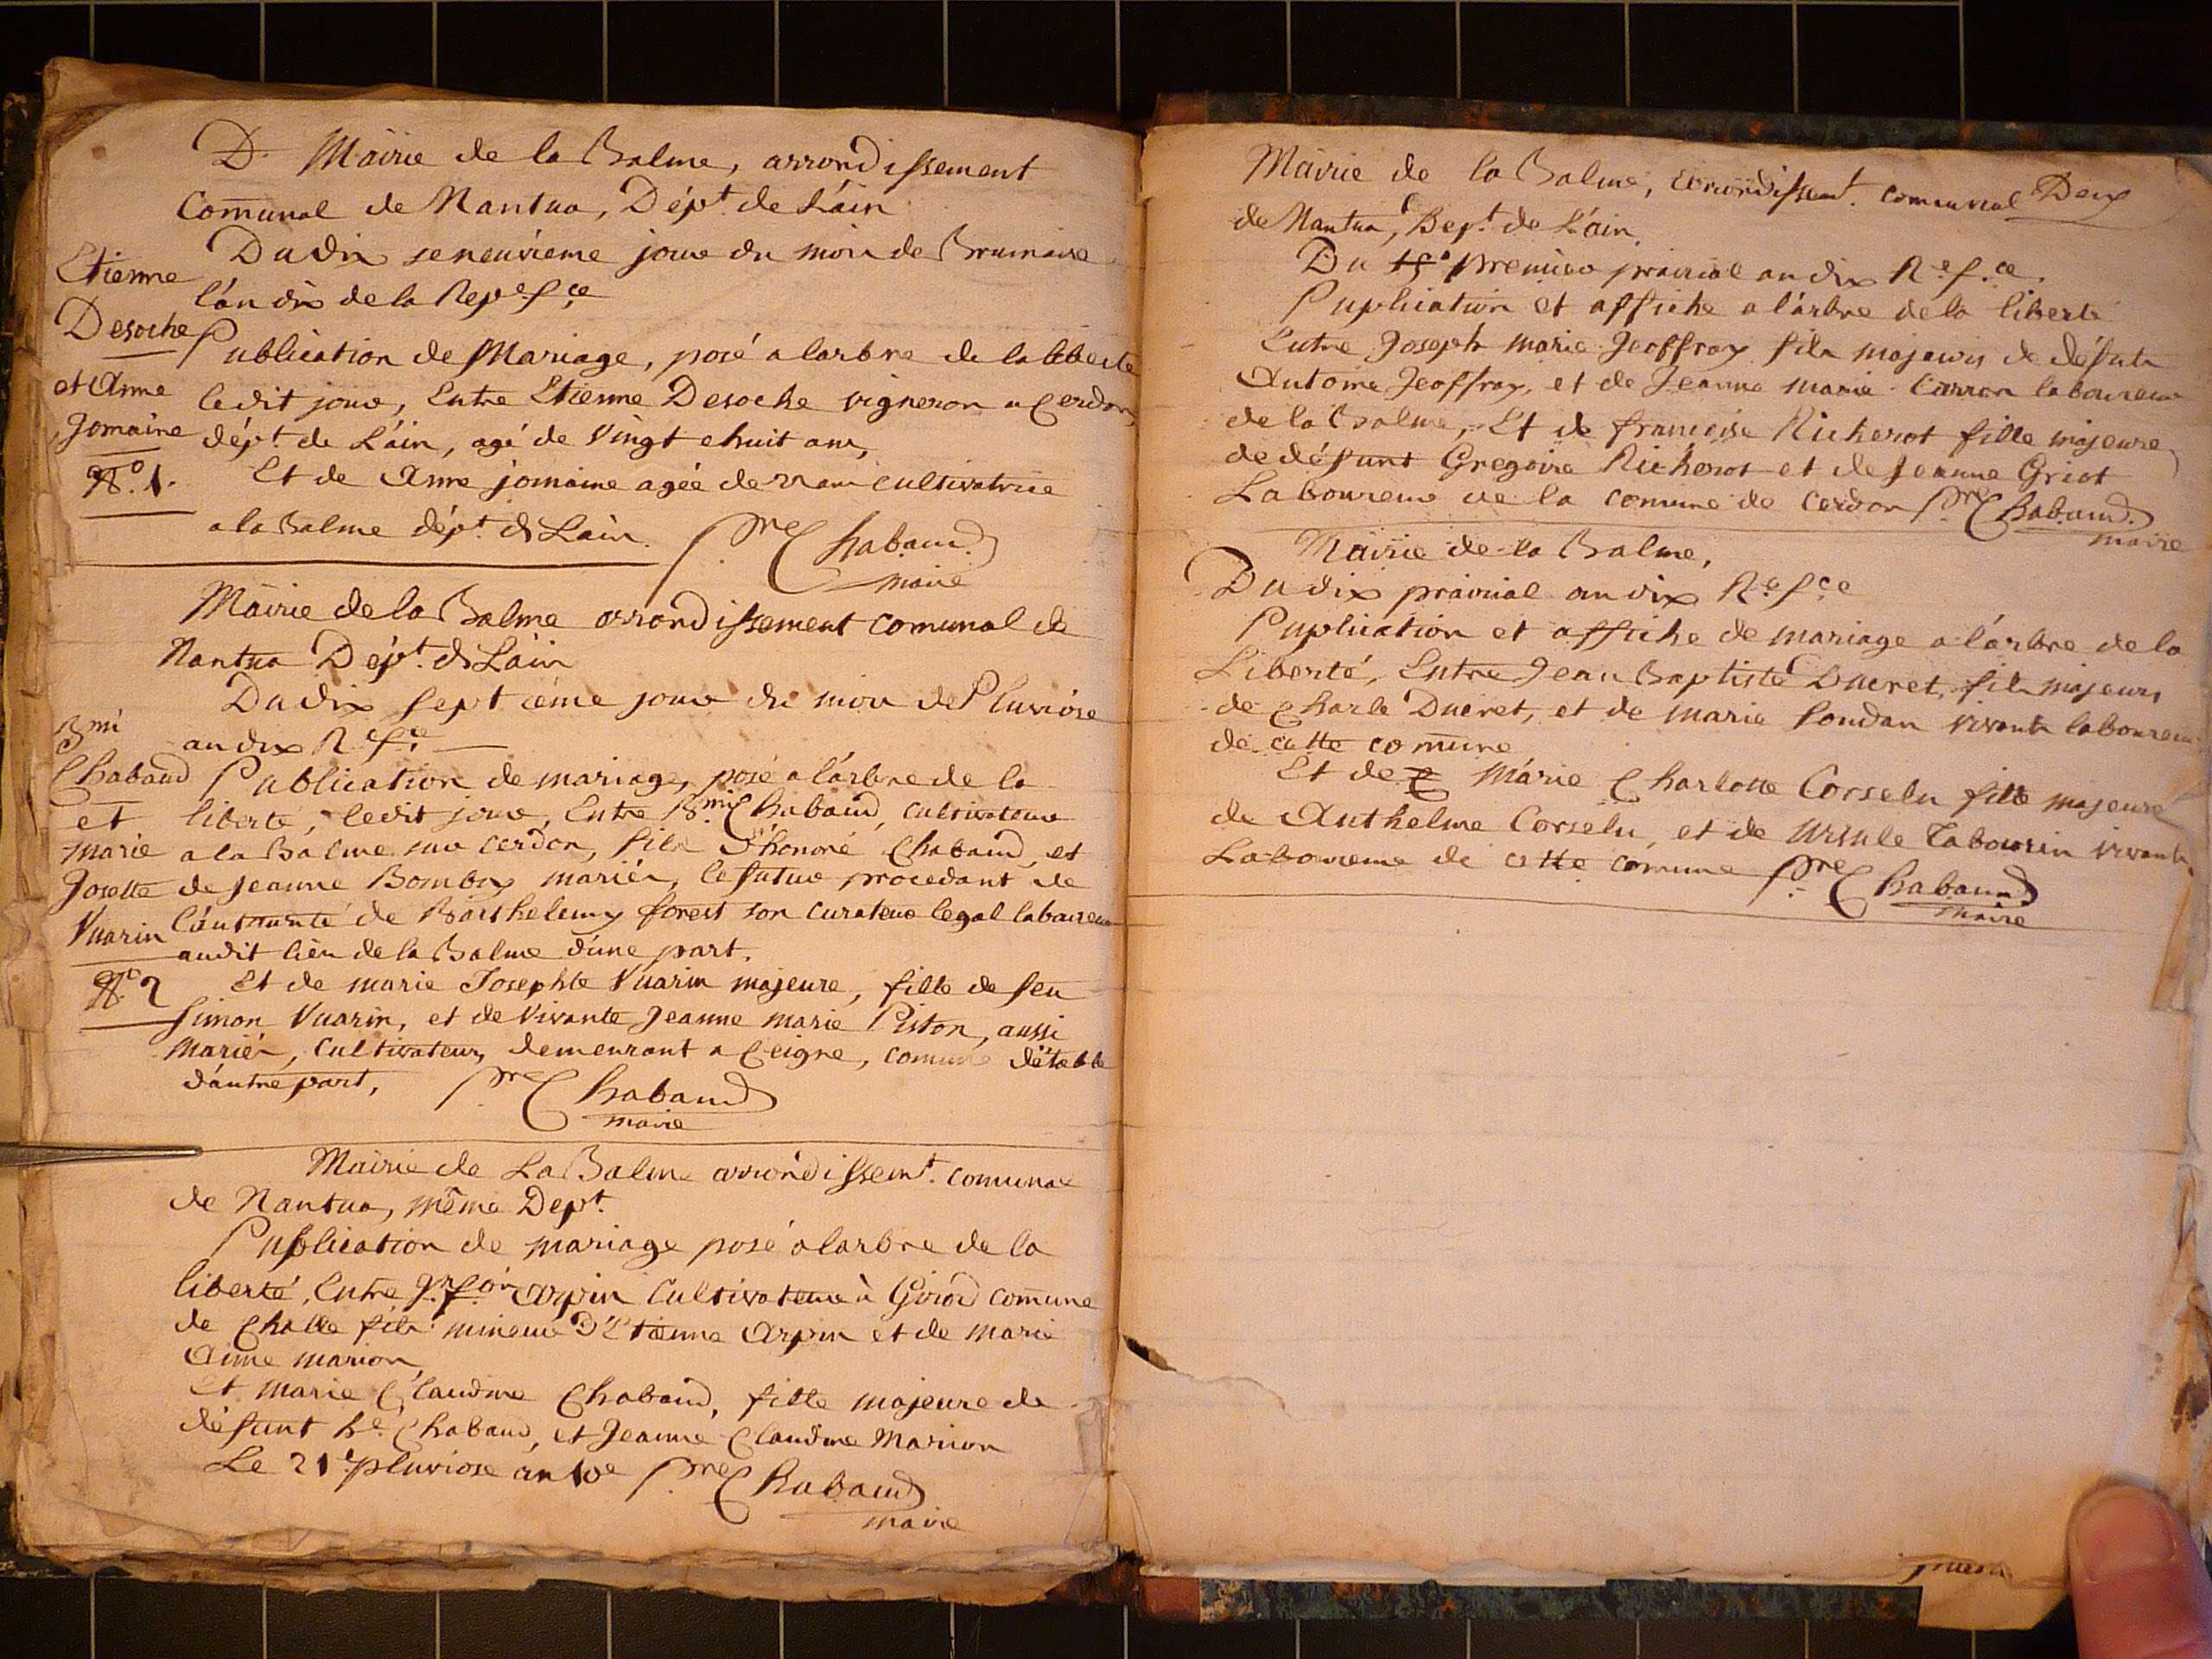 D. Mairie de la Balme, arrondissement
Comunal de Nantua, Dépt. de L'ain
Du dix seneuvieme jour du mois de Brumaire
l'an dix de la Repe. fçe
Etienne
Desoche
et Anne
Jomaine
No. 1.
Publication de Mariage, posé a larbre de la liberté
ledit jour, Entre Etienne Desoche vigneron a Cerdon
dépt. de L'ain, agé de Vingt ehuit ans,
Et de Anne jomaine agée de 22 ans cultivatrice
a la Balme dépt. de Lain. Pre Chabaud
maire
Mairie de la Balme arrondissement comunal de
Nantua Dépt. de Lain
Du dix sept ieme jour du mois de Pluviose
an dix R. fçe
Bmi
Chabaud
et
Marie
Josette
Vuarin
No. 2
Publication de mariage, posé a l'arbre de la
liberté, ledit jour, Entre Bmi Chabaud, cultivateur
a la Balme sur Cerdon, fils d'honoré Chabaud, et
de Jeanne Bomboy mariés, le futur procedant de
l'autorité de Barthelemy forest son curateur legal laboureur
audit lieu de la Balme d'une part.
Et de marie Josephte Vuarin majeure, fille de feu
Simon Vuarin, et de Vivante Jeanne marie Piston, aussi
Mariés, Cultivateurs, demeurant a Ceigne, comune d'étable
d'autre part, Pre Chabaud
maire
Mairie de La Balme arrondissemt. comunal
de Nantua, même Dept.
Publication de mariage posé a larbre de la
liberté, Entre arpin Cultivateur à Giriod comune
de Challe fils mineur d'Etienne Arpin et de marie
Anne marion,
et marie Claudine Chabaud, fille majeure de
défunt he. Chabaud, et Jeanne Claudine Marion
Le 21e pluviose an 10e Pre Chabaud
maire
Deux
Mairie de la Balme, arrondissemt. comunal
de Nantua, Dept. de L'ain.
Du 15e premier prairial an dix Re. f.ce.
Puplication et affiche a l'arbre de la liberté
Entre Joseph marie Jeoffray fils majeurs de défunts
Antoine Jeoffray, et de Jeanne marie Carran laboureur
de la Balme, Et de francoise Richerot fille majeure
de défunt Gregoire Richerot et de Jeanne Griot
Laboureur de la comune de Cerdon Pre Chabaud
maire
Mairie de la Balme,
Du dix prairial an dix Re fçe
Puplication et affiche de mariage a l'arbre de la
Liberté, Entre Jean Baptiste Ducret, fils majeurs
de Charle Ducret, et de marie Soudan vivants laboureur
de cette comune
Et de Marie Charlotte Corselu fille majeure
de Anthelme Corselu, et de Ursule Tabourin vivants
Laboureur de cette comune Pre Chabaud
maire